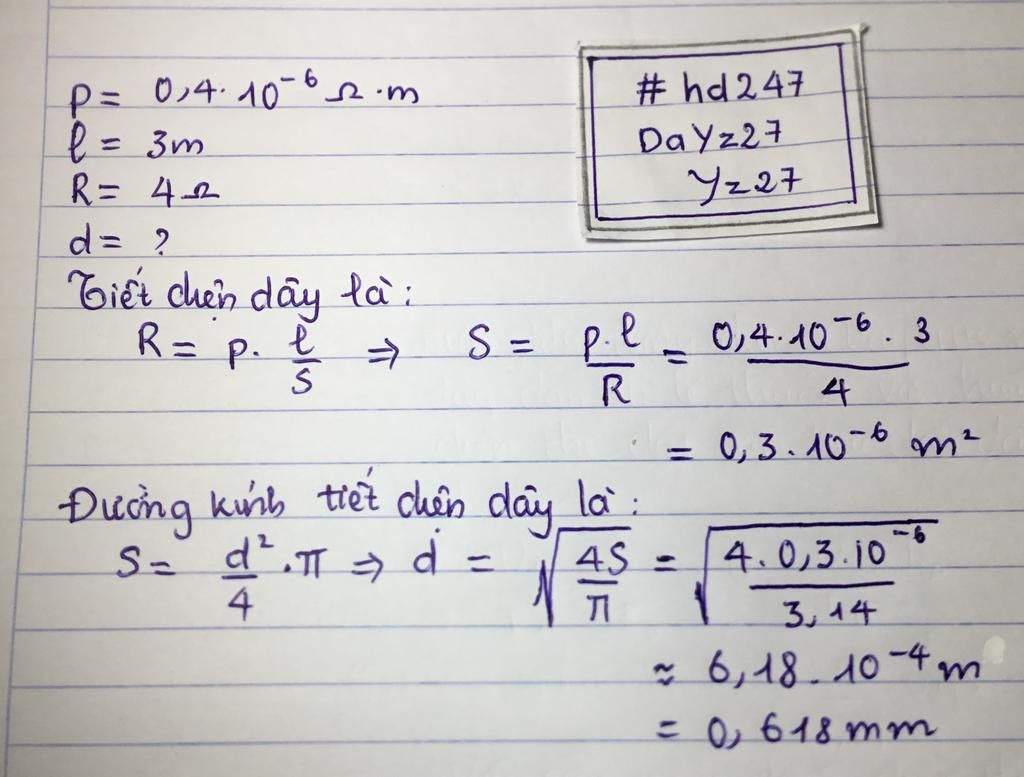 p = 0,4 · 10⁻⁶ Ω · m
l = 3m
R = 4Ω
d = ?
# hd247
DaYz27
Yz27
Tiết diện dây là:
R = p · l/S ⇒ S = p.l/R = 0,4 · 10⁻⁶ . 3/4
= 0,3 . 10⁻⁶ m²
Đường kính tiết diện dây là:
S = d²/4 . π ⇒ d = √(4S/π) = √(4 . 0,3 . 10⁻⁶/3,14)
≈ 6,18 . 10⁻⁴ m
= 0,618 mm